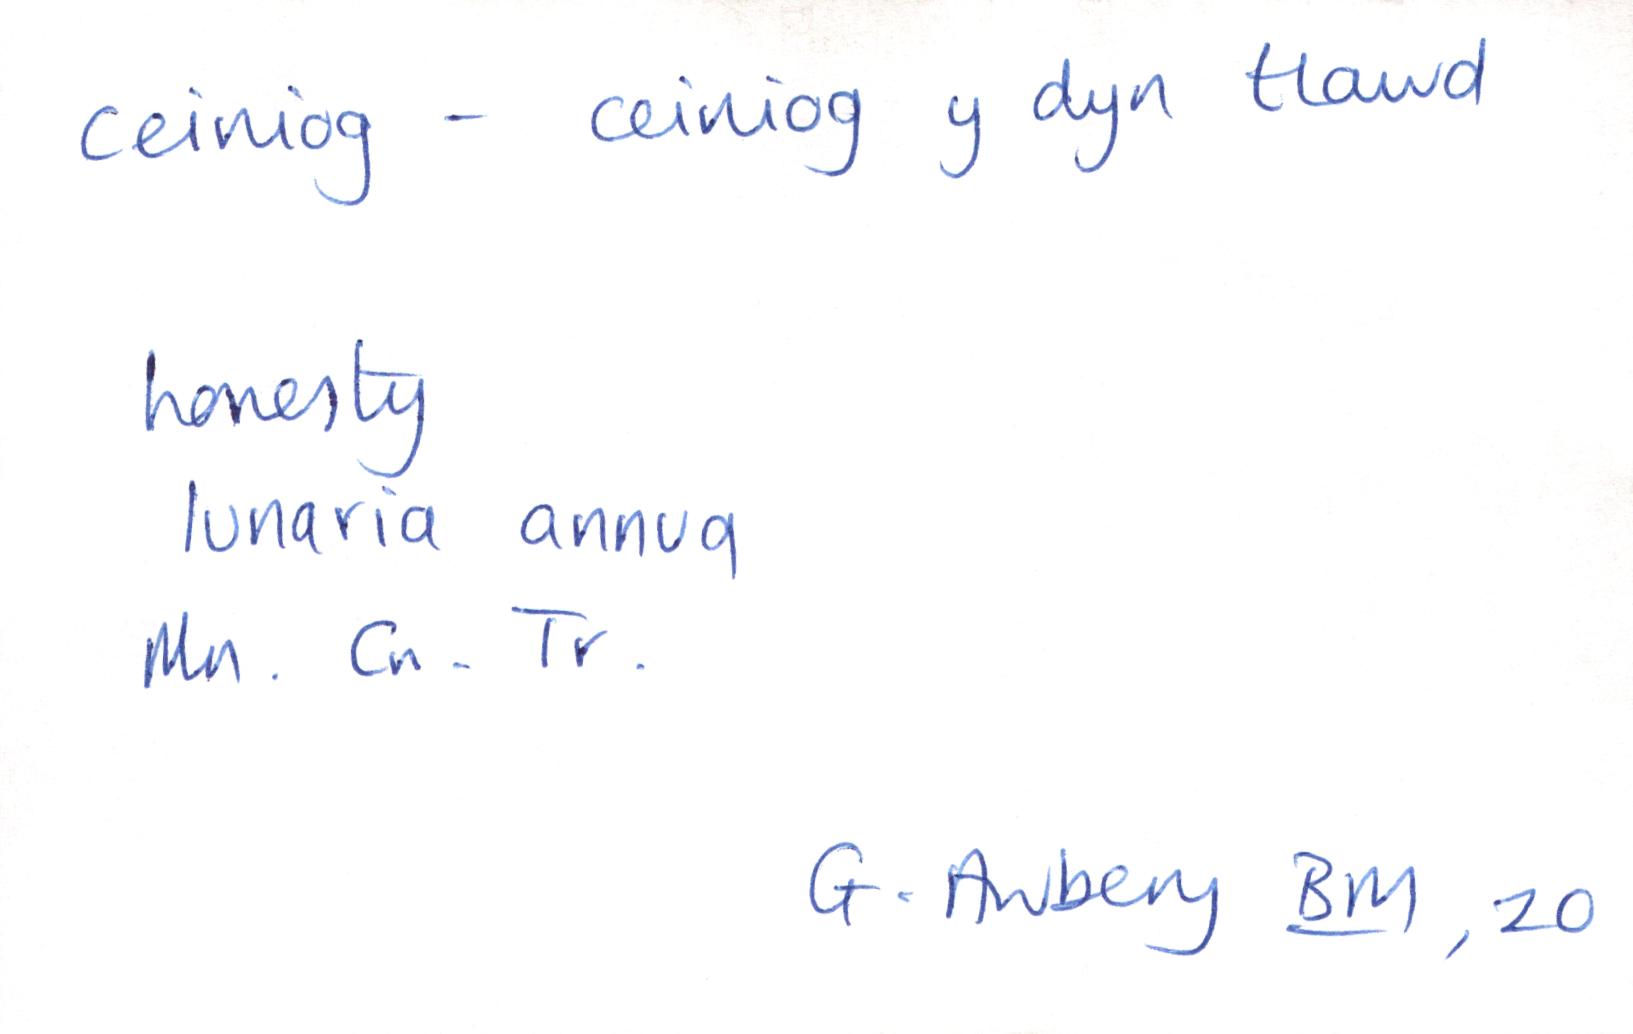 ceiniog - ceiniog y dyn tlawd
honesty
lunaria annua
Mn. Cn. Tr.
G. Awbery BM, 20